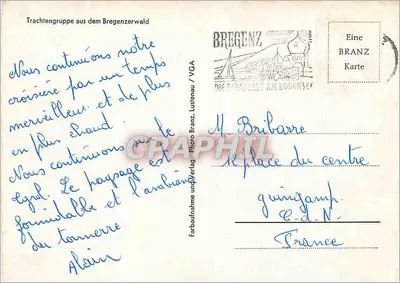 Trachtengruppe aus dem Bregenzerwald
Nous continuons notre
croisière par un temps
merveilleux et de plus
en plus chaud.
Nous continuons sur le
Tyrol. Le paysage est
formidable et l'ambiance
du tonnerre
Alain
Farbaufnahme und Verlag Photo Branz, Lustenau / VGA
BREGENZ
DIE BERGSTADT AM BODENSEE
Eine
BRANZ
Karte
M Bribarre
place du centre
guingamp.
C.d.N.
France
CPAPHIL